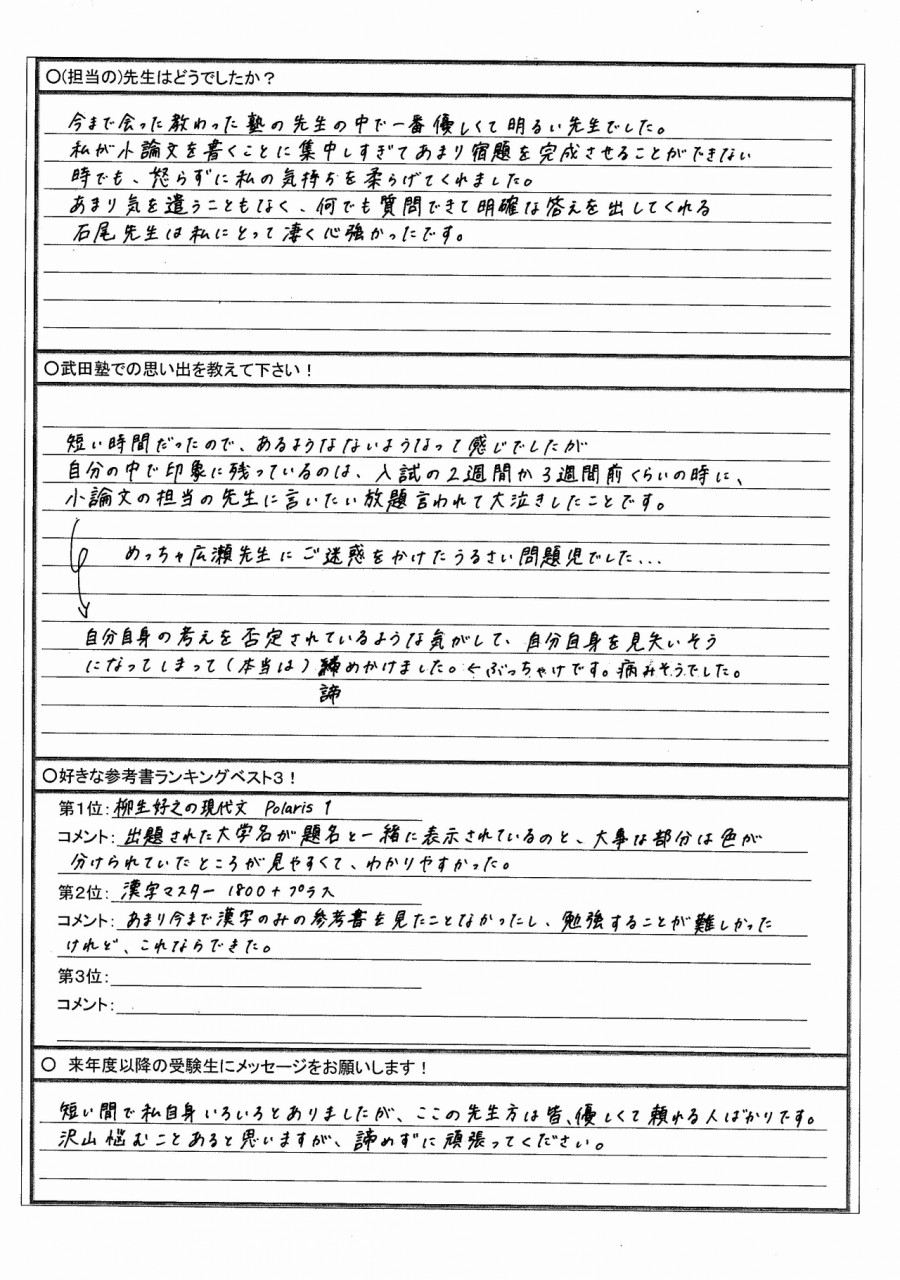 ○(担当の)先生はどうでしたか？
今まで会った教わった塾の先生の中で一番優しくて明るい先生でした。
私が小論文を書くことに集中しすぎてあまり宿題を完成させることができない
時でも、怒らずに私の気持ちを柔らげてくれました。
あまり気を遣うこともなく、何でも質問できて明確な答えを出してくれる
石尾先生は私にとって凄く心強かったです。
○武田塾での思い出を教えて下さい！
短い時間だったので、あるようなないようなって感じでしたが
自分の中で印象に残っているのは、入試の2週間か3週間前くらいの時に、
小論文の担当の先生に言いたい放題言われて大泣きしたことです。
めっちゃ広瀬先生にご迷惑をかけたうるさい問題児でした...
自分自身の考えを否定されているような気がして、自分自身を見失いそう
になってしまって(本当は)諦めかけました。←ぶっちゃけです。病みそうでした。
諦
○好きな参考書ランキングベスト3！
第1位：柳生好之の現代文 Polaris 1
コメント：出題された大学名が題名と一緒に表示されているのと、大事な部分は色が
分けられていたところが見やすくて、わかりやすかった。
第2位：漢字マスター 1800+プラス
コメント：あまり今まで漢字のみの参考書を見たことなかったし、勉強することが難しかった
けれど、これならできた。
第3位：
コメント：
○ 来年度以降の受験生にメッセージをお願いします！
短い間で私自身いろいろとありましたが、ここの先生方は皆、優しくて頼れる人ばかりです。
沢山悩むことあると思いますが、諦めずに頑張ってください。